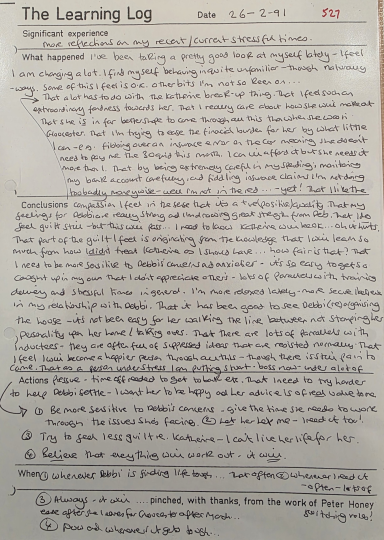 The Learning Log Date 26-2-91 527
Significant experience
more reflections on my recent/current stressful times.
What happened I've been taking a pretty good look at myself lately - I feel
I am changing a lot. I find myself behaving in quite unfamiliar - though naturally
-ways. Some of this I feel is o.k. other bits I'm not so keen on...
That a lot has to do with the Katherine break-up thing. That I feel such an
extraordinary fondness towards her. That I really care about how she will make out
That she is in far better shape to come through all this than when she was in
Gloucester. That I'm trying to ease the financial burden for her by what little
I can - e.g. fibbing over an insurance error on the car meaning she doesn't
need to pay me the this month. I can ill afford it but she needs it
more than I. That by being extremely careful in my spending, monitoring
my bank account carefully and fiddling insurance claims I'm not doing
too badly moneywise - well I'm not in the red... - yet! That I like the
Conclusions compassion I feel in the sense that its a true positive quality. That my
feelings for Debbi are really strong and I'm drawing great strength from Deb. That I do
feel guilt still - but this will pass... I need to know Katherine will be ok...
That part of the guilt I feel is originating from the knowledge that I will learn so
much from how I did treat Katherine as I should have... how fair is that? That
I need to be more sensitive to Debbi's concerns and anxieties - it's so easy to get so
caught up in my own that I don't appreciate theirs - lots of parallels with training
delivery and stressful times in general. I'm more relaxed lately - more secure I believe
in my relationship with Debbi. That it has been good to see Debbi (re)organising
the house - its not been easy for her walking the line between not stamping her
personality upon her home / taking over. That there are lots of parallels with
inductees - they are often full of suppressed ideas that are resisted normally. That
I feel I will become a happier person through all this - though there is still pain to
come. That as a person under stress I am putting that boss now under a lot of
Actions pressure - time off needed to get to bank etc. That I need to try harder
to help Debbi settle - I want her to be happy and her advice is of real value to me
① Be more sensitive to Debbi's concerns - give the time she needs to work
through the issues she's facing. ② Let her help me - I need it too!.
③ Try to feel less guilt i.r.t. Katherine - I can't live her life for her.
④ Believe that everything will work out - it will.
When ① whenever Debbi is finding life tough... That often ② whenever I need it
- often - lots of
③ Always - it will .....pinched, with thanks, from the work of Peter Honey
ease after she leaves for Gloucester after March...
④ and whenever it gets tough...